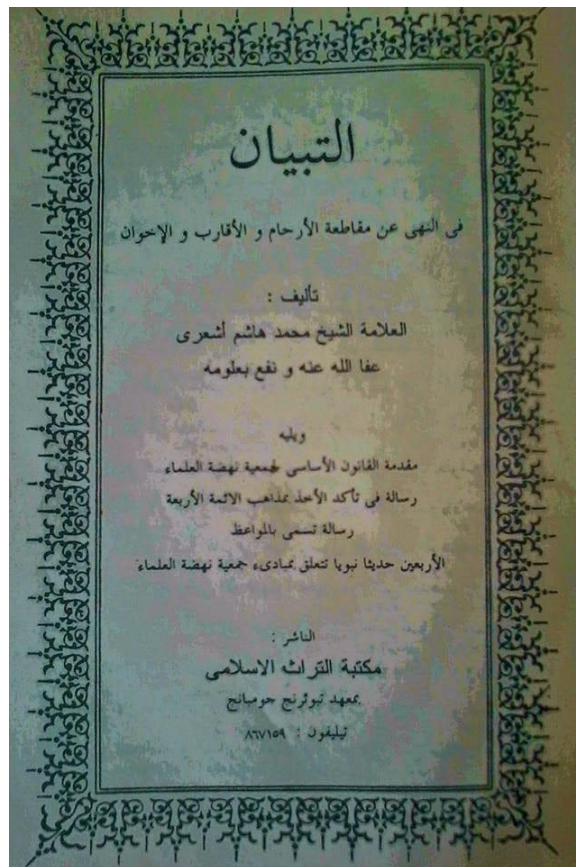 التبيان
في النهى عن مقاطعة الأرحام و الأقارب و الإخوان
تأليف :
العلامة الشيخ محمد هاشم أشعرى
عفا الله عنه و نفع بعلومه
ويليه
مقدمة القانون الأساسى لجمعية نهضة العلماء
رسالة فى تأكد الأخذ بمذاهب الائمة الأربعة
رسالة تسمى بالمواعظ
الأربعين حديثا نبويا تتعلق بمبادىء جمعية نهضة العلماء
الناشر :
مكتبة التراث الاسلامى
بمعهد تبوئرنج جومبانج
تيليفون : ٨٦٧١٥٩